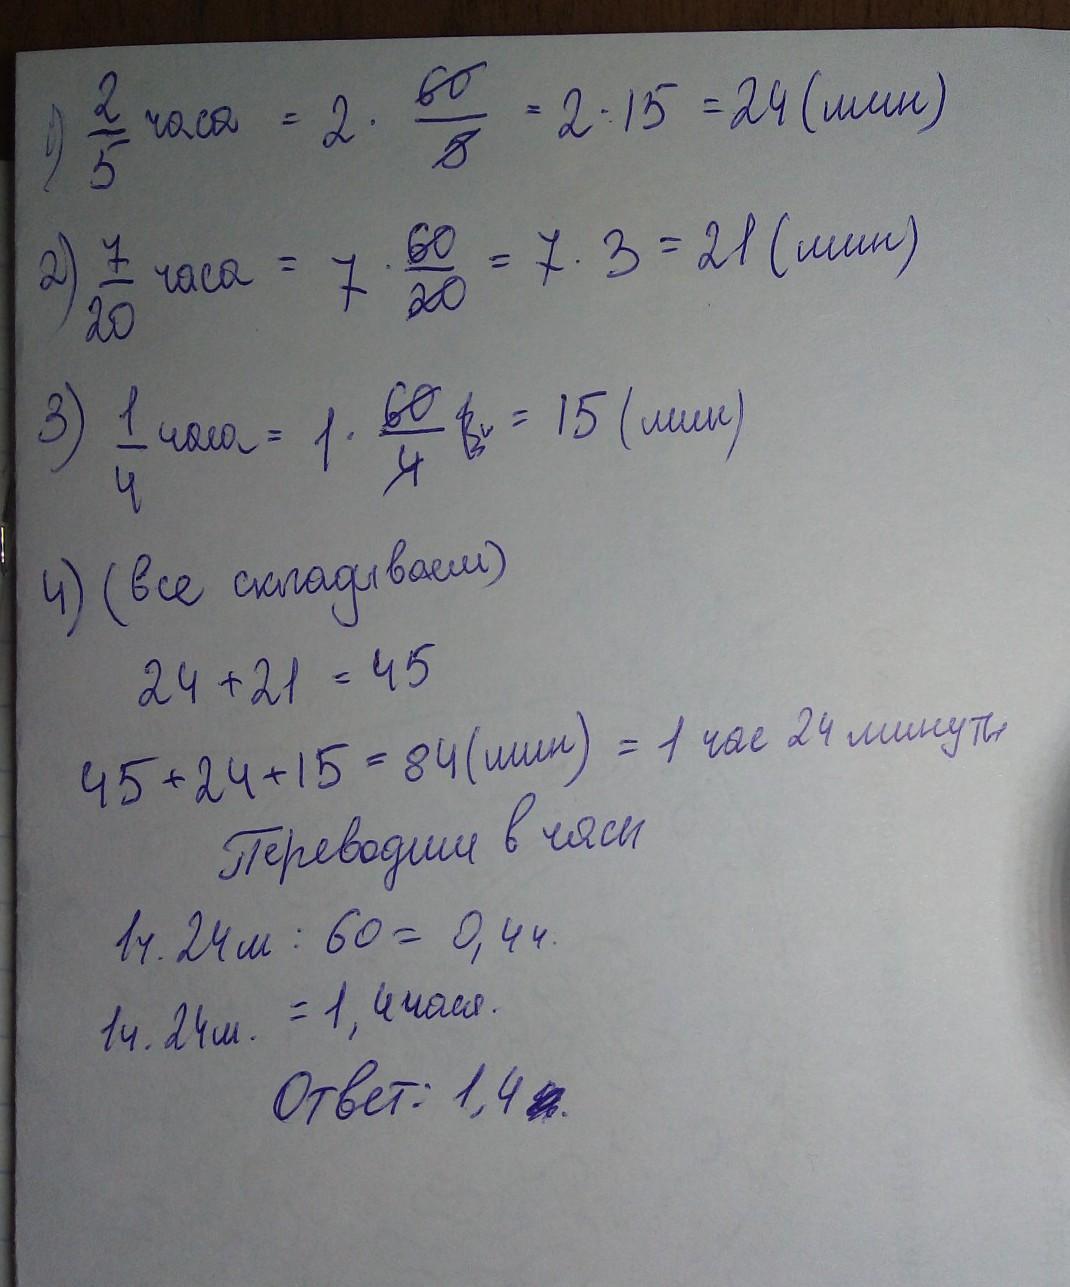 1) 2/5 часа = 2 · 60/5 = 2 · 15 = 24 (мин)
2) 7/20 часа = 7 · 60/20 = 7 · 3 = 21 (мин)
3) 1/4 часа = 1 · 60/4 = 15 (мин)
4) (все складываем)
24 + 21 = 45
45 + 24 + 15 = 84 (мин) = 1 час 24 минуты
Переводим в часы
1ч. 24м : 60 = 0,4ч.
1ч. 24м. = 1,4 часа.
Ответ: 1,4